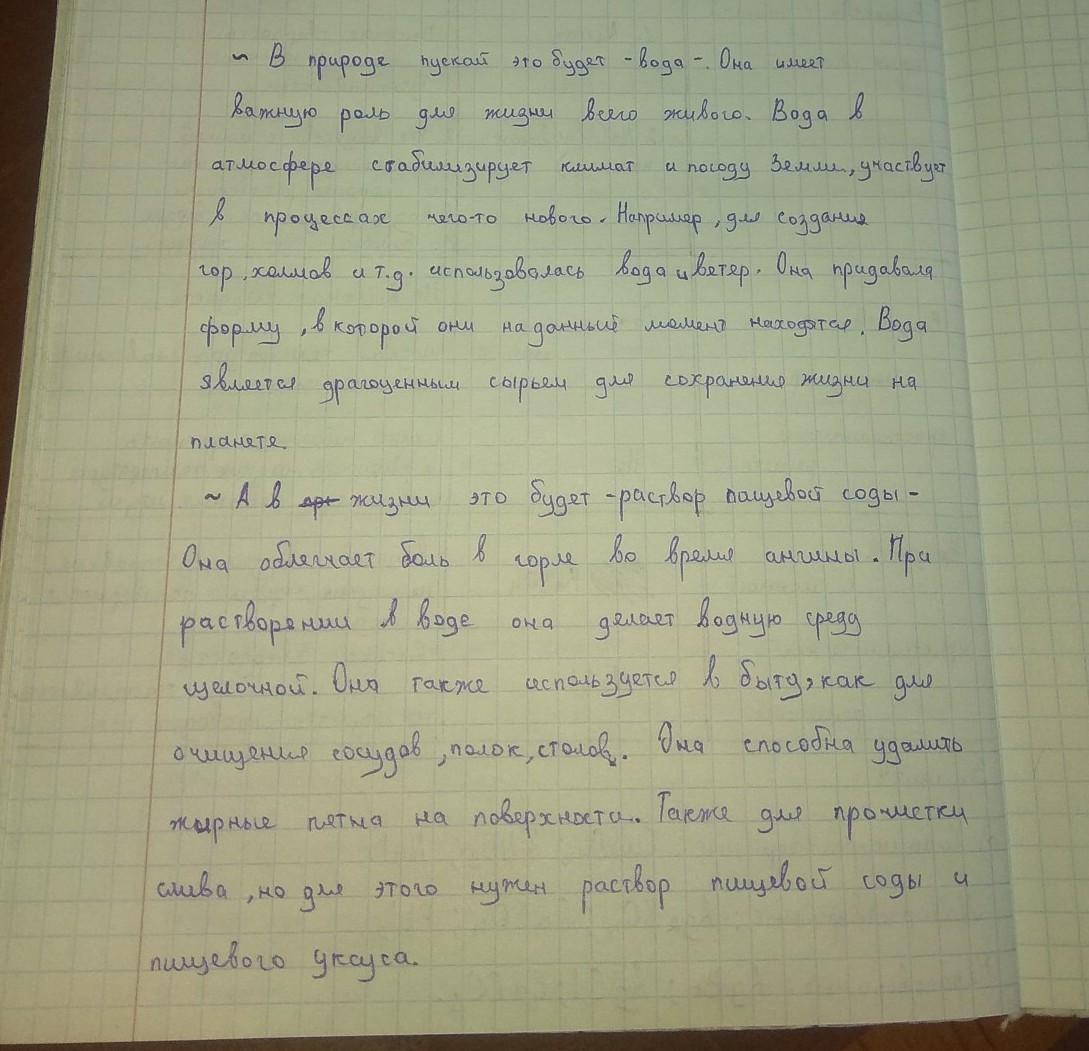 ~ В природе пускай это будет -вода-. Она имеет
важную роль для жизни всего живого. Вода в
атмосфере стабилизирует климат и погоду Земли, участвует
в процессах чего-то нового. Например, для создания
гор, холмов и т.д. использовалась вода и ветер. Она придавала
форму, в которой они на данный момент находятся. Вода
является драгоценным сырьем для сохранения жизни на
планете.
~ А в жизни это будет -раствор пищевой соды-
Она облегчает боль в горле во время ангины. При
растворении в воде она делает водную среду
щелочной. Она также используется в быту, как для
очищения сосудов, полок, столов. Она способна удалить
жирные пятна на поверхности. Также для прочистки
слива, но для этого нужен раствор пищевой соды и
пищевого уксуса.